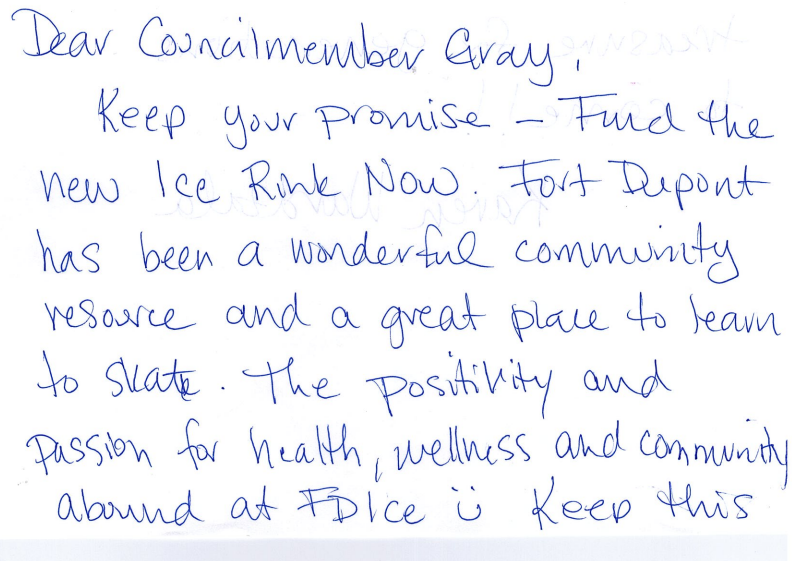 Dear Councilmember Gray,
Keep your promise – Fund the
new Ice Rink Now. Fort Dupont
has been a wonderful community
resource and a great place to learn
to skate. The positivity and
passion for health, wellness and community
abound at FDIce ü Keep this